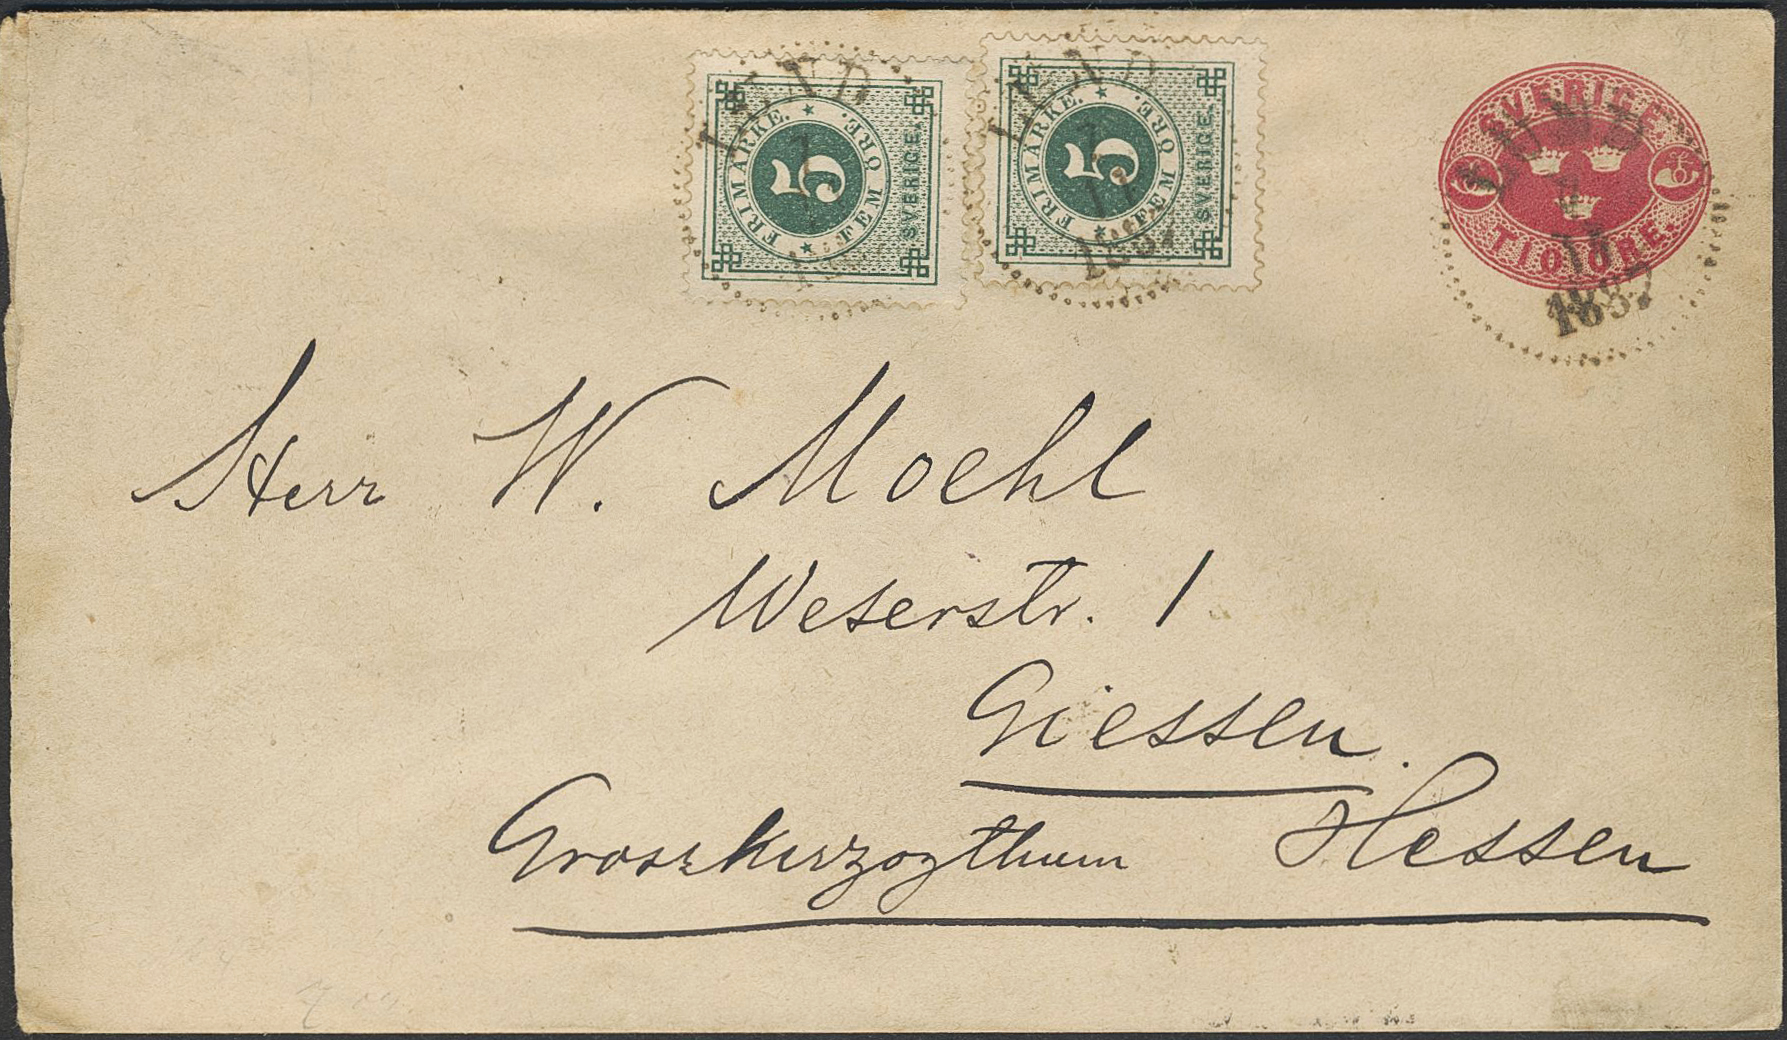 LUND
7
FRIMÄRKE.
5
FEM ÖRE.
SVERIGE.
LUND
7
11
1887
FRIMÄRKE.
5
FEM ÖRE.
SVERIGE.
SVERIGE.
TIO ÖRE.
LUND
7
11
1887
Herr W. Moehl
Weserstr. 1
Giessen.
Groszherzogthum Hessen